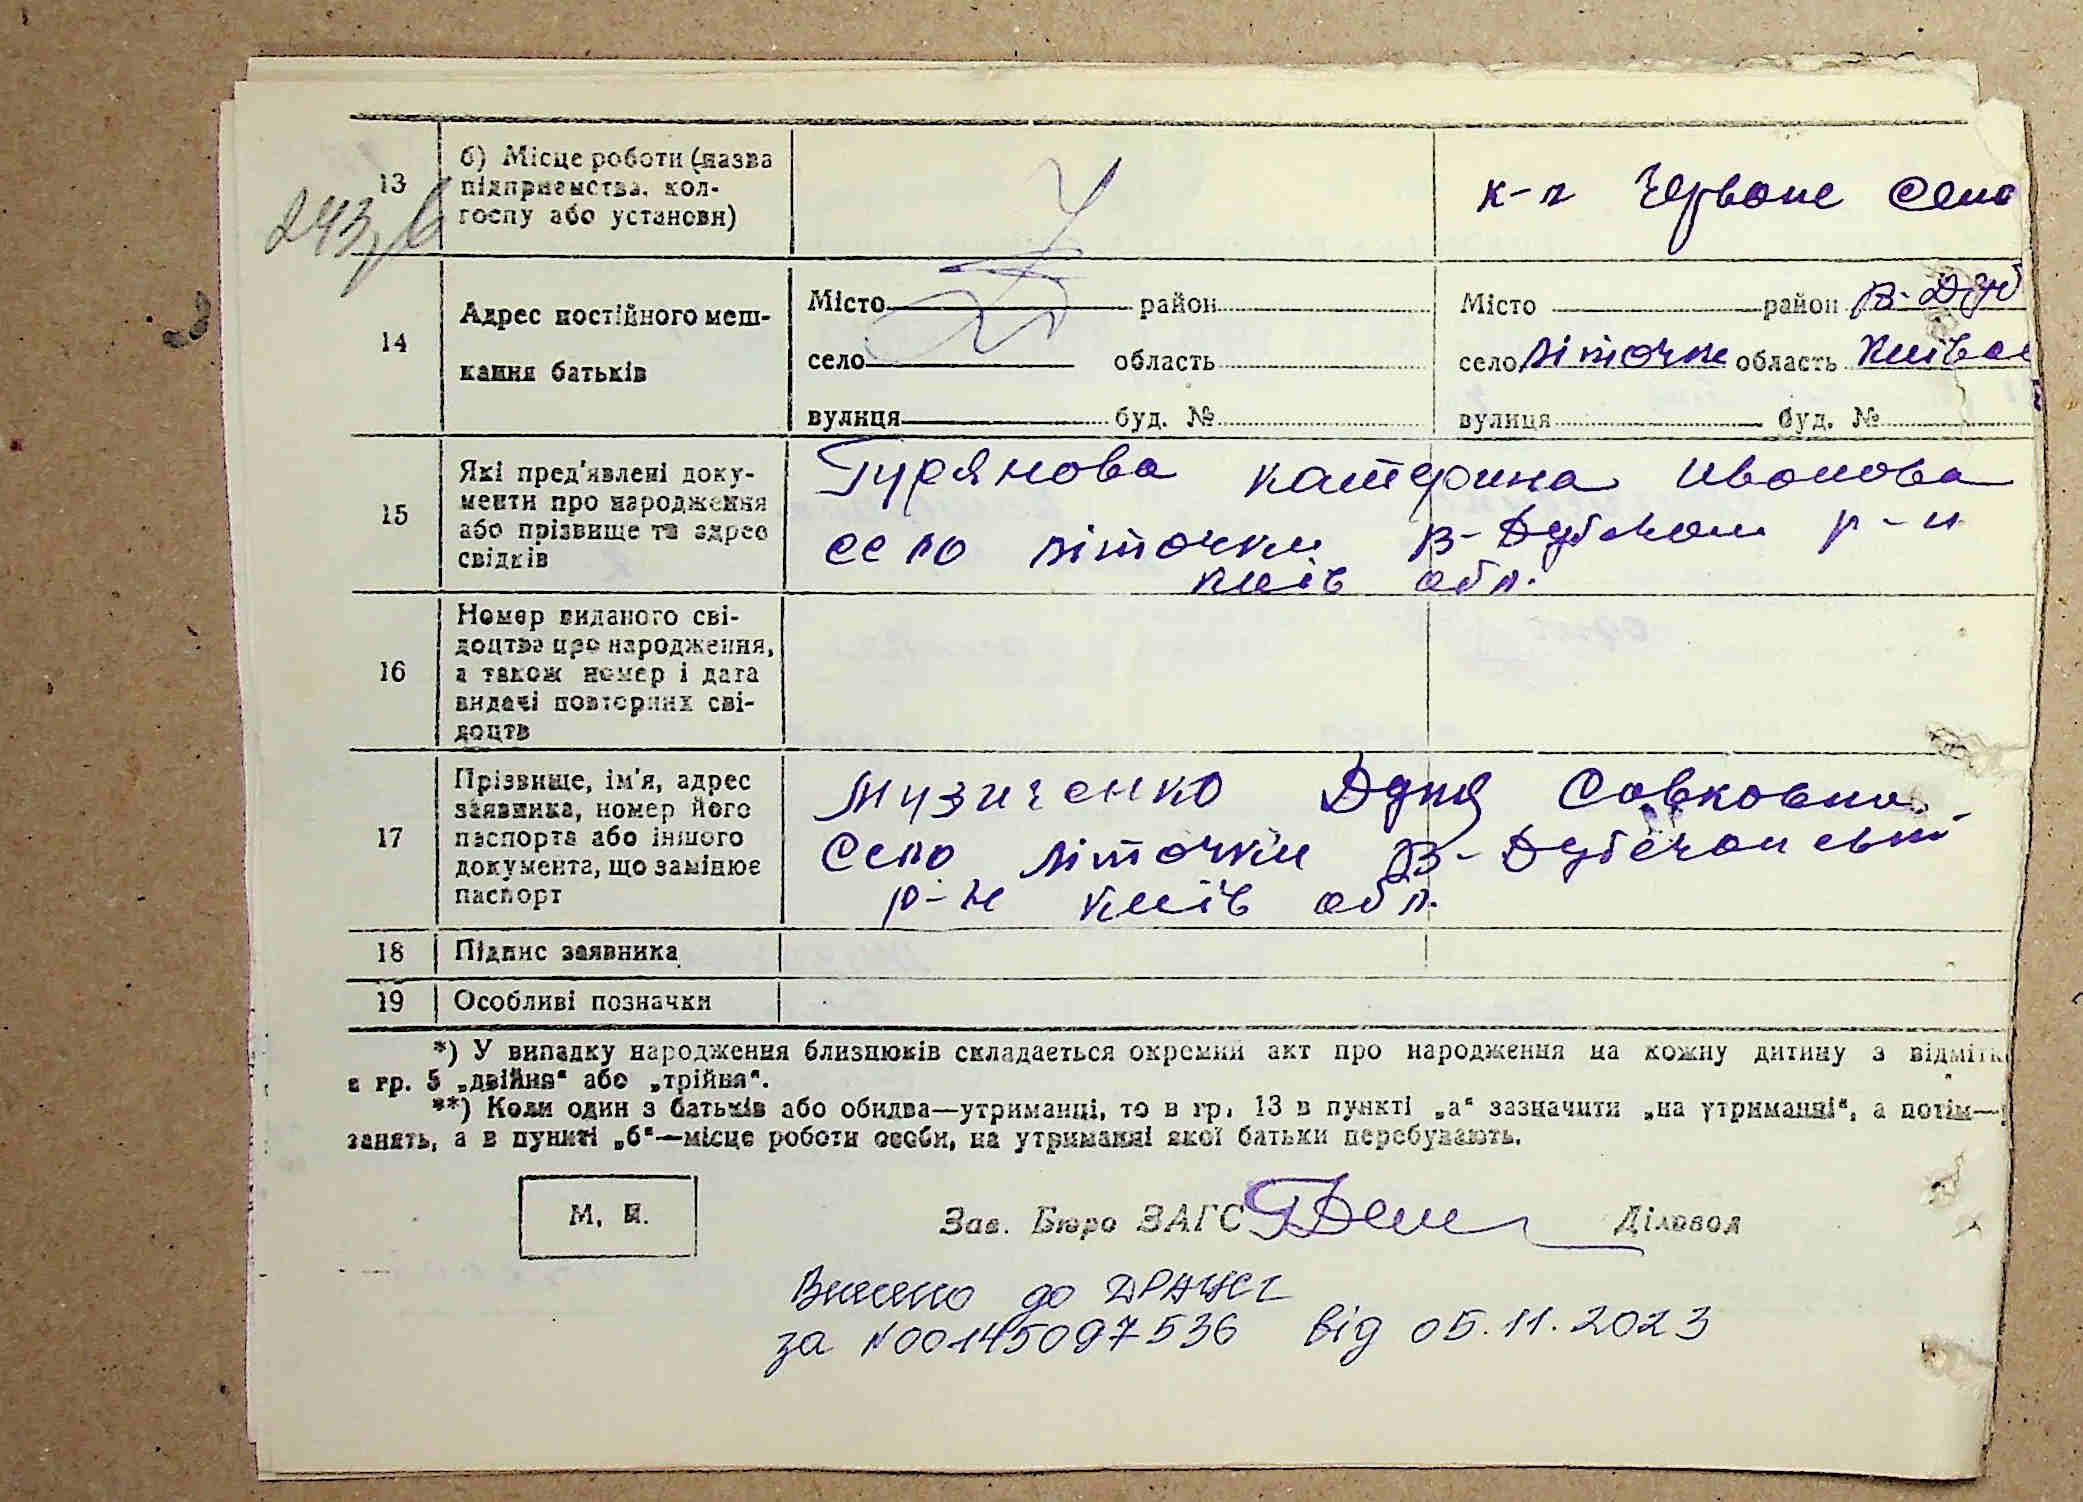 243 б
13 б) Місце роботи (назва
підприємства, кол-
госпу або установи)
к-п Червоне село
14 Адрес постійного меш-
кання батьків
Місто район
село область
вулиця буд. №
Місто район В-Дуб
село Літочки область Київськ
вулиця буд. №
15 Які пред'явлені доку-
менти про народження
або прізвище та адрес
свідків
Гурянова Катерина Ивонова
село Літочки В-Дубечан р-н
Київ обл.
16 Номер виданого сві-
доцтва про народження,
а також номер і дата
видачі повторних сві-
доцтв
17 Прізвище, ім'я, адрес
заявника, номер його
паспорта або іншого
документа, що замінює
паспорт
Музиченко Савковна
Село Літочки В-Дубечанський
р-н Київ обл.
18 Підпис заявника
19 Особливі позначки
*) У випадку народження близнюків складається окремий акт про народження на кожну дитину з відмітк
в гр. 5 „двійня“ або „трійня“.
**) Коли один з батьків або обидва—утриманці, то в гр. 13 в пункті „а“ зазначити „на утриманні“, а потім—
занять, а в пункті „б“—місце роботи особи, на утриманні якої батьки перебувають.
М. П.
Зав. Бюро ЗАГС Діловод
Внесено до ДРАЦСГ
за №00145097536 від 05.11.2023